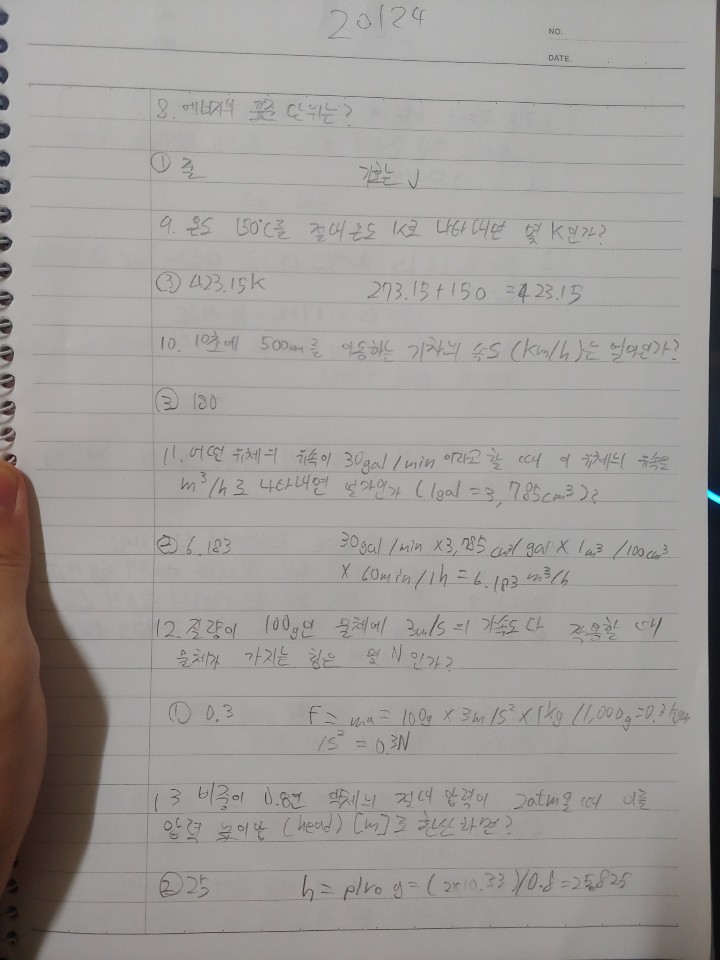 20124
NO.
DATE.
8. 에너지의 표준 단위는?
① 줄 기호는 J
9. 온도 150℃를 절대온도 K로 나타내면 몇 K인가?
③ 423.15K 273.15+150 =423.15
10. 10초에 500m를 이동하는 기차의 속도 (km/h)는 얼마인가?
③ 180
11. 어떤 유체의 유속이 30gal/min 이라고 할 때 이 유체의 유속을
m³/h로 나타내면 얼마인가 (1gal=3,785cm³)?
② 6.183 30gal/min ×3,785 cm³/gal × 1m³/100cm³
× 60min/1h = 6.183 m³/h
12. 질량이 100g인 물체에 3m/s의 가속도다 작용할 때
물체가 가지는 힘은 몇 N인가?
① 0.3 F= ma = 100g × 3m/s² × 1kg/1,000g=0.3kgm
/s² = 0.3N
13 비중이 0.8인 액체의 절대 압력이 2atm일 때 이를
압력 높이인 (head) [m]로 환산하면?
② 25 h= p/ro g = (2×10.33)/0.8=25.825